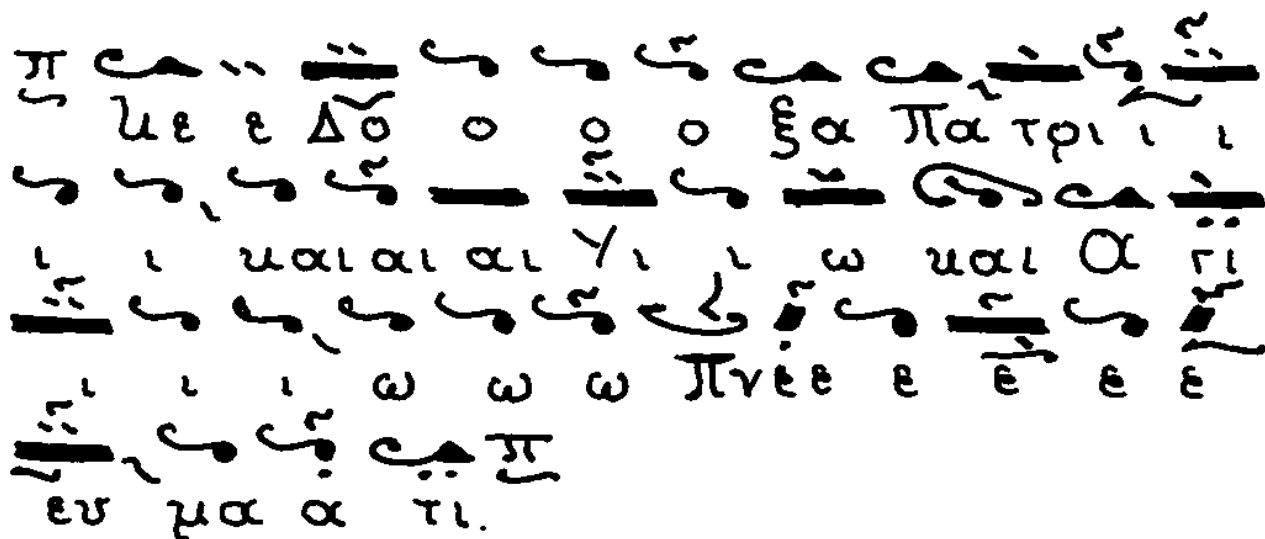 π Κε ε Δο ο ο ο ξα Πα τρι ι ι
ι ι και αι αι Υι ι ω και Α γι
ι ι ι ω ω ω Πνε ε ε ε ε ε
ευ μα α τι. π